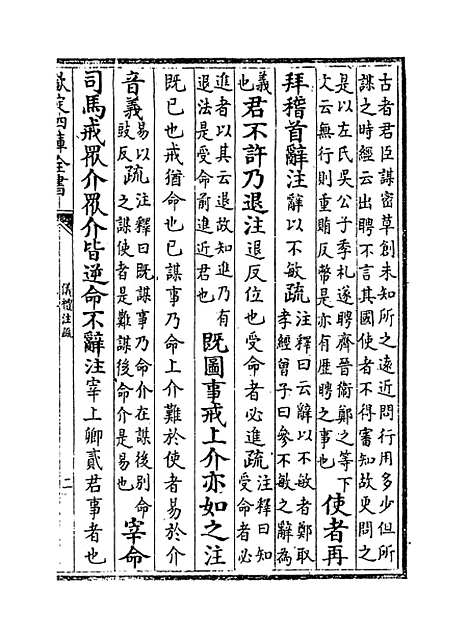 古者君臣謀密草創未知所之遠近問行用多少但所
謀之時經云出聘不言其國使者不得審知故更問之
是以左氏吳公子季札遂聘齊晉衛鄭之等下
文云無行則重賄反幣是亦有歴聘之事也
使者再
拜稽首辭注辭以不敏疏注釋曰云辭以不敏者鄭取
孝經曾子曰參不敏之辭為
義
也君不許乃退注退反位也受命者必進疏注釋曰知
受命者必
進者以其云退故知進乃有
退法是受命前進近君也
既圖事戒上介亦如之注
既已也戒猶命也已謀事乃命上介難於使者易於介
音義易以
豉反疏注釋曰既謀事乃命介在謀後别命
之謀使者是難謀後命介是易也
宰命
司馬戒眾介眾介皆逆命不辭注宰上卿貳君事者也
欽定四庫全書
儀禮注疏
二